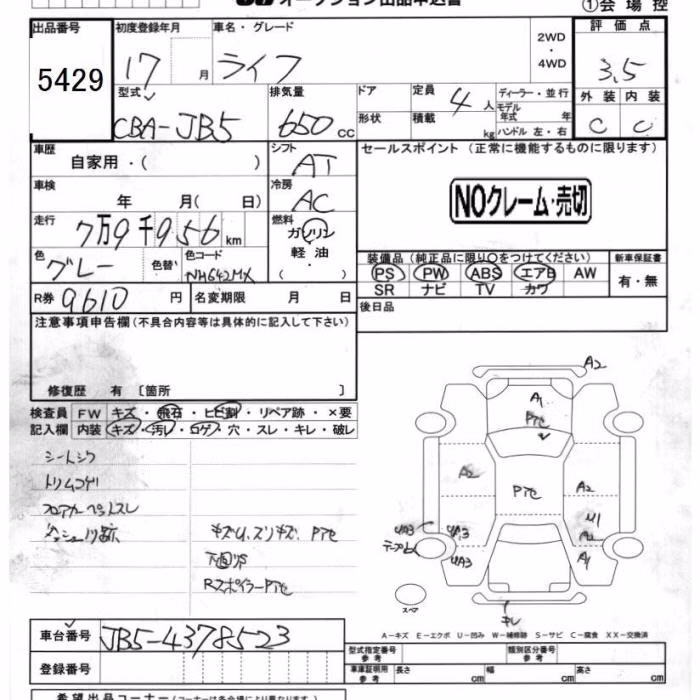 オークション出品申込書
①会場控
出品番号
5429
初度登録年月
17 月
車名・グレード
ライフ
2WD
・
4WD
評価点
3.5
外装 内装
C C
型式
CBA-JB5
排気量
650 cc
ドア
形状
定員 4 人
積載 kg
ディーラー・並行
モデル年式 年
ハンドル 左・右
車歴
自家用・( )
シフト
AT
車検
年 月( 日)
冷房
AC
走行
7万9千956 km
燃料
ガソリン
軽油
( )
色
グレー
色替
色コード
NH642MX
R券 9610 円
名変期限 月 日
セールスポイント (正常に機能するものに限ります)
NOクレーム・売切
装備品(純正品に限り○をつけてください)
PS PW ABS エアB AW
SR ナビ TV カワ
新車保証書
有・無
後日品
注意事項申告欄(不具合内容等は具体的に記入して下さい)
修復歴 有 [箇所 ]
検査員
記入欄
FW キズ・飛石・ヒビ割・リペア跡・×要
内装 キズ・汚レ・コゲ・穴・スレ・キレ・破レ
シートシワ
トリムコゲ
フロアカーペットスレ
キズU、スリキズ、Pアセ
下回りS
RスポイラーPアセ
A2
A1
Pアセ
A2
Pアセ
A2
U1
A2
A1
UA3
UA3
UA3
スペア
キレ
A-キズ E-エクボ U-凹み W-補修跡 S-サビ C-腐食 XX-交換済
車台番号
JB5-4378523
登録番号
型式指定番号
参考
類別区分番号
参考
車庫証明用
参考
長さ cm 幅 cm 高さ cm
希望出品コーナー